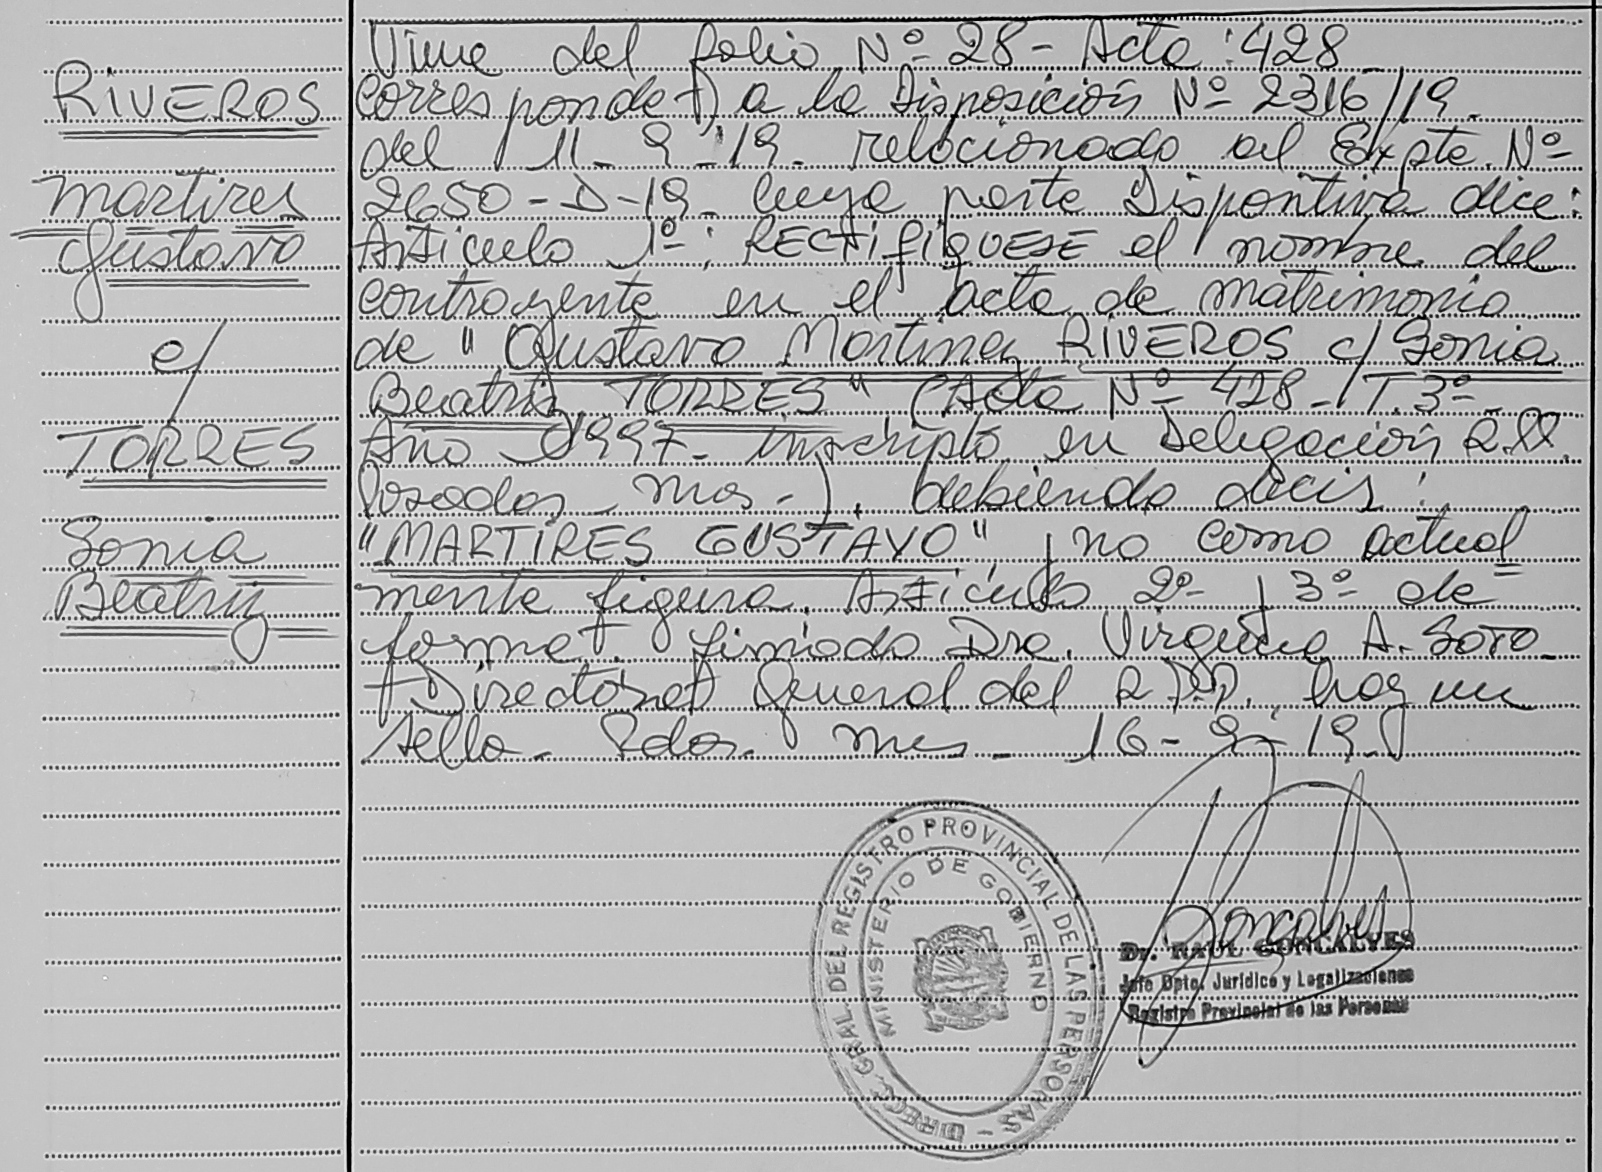 RIVEROS
Martires
Gustavo
c/
TORRES
Sonia
Beatriz
Viene del folio Nº 28 - Acta: 428
Corresponde a la Disposición Nº 2316/19.
del 11-9-19. relacionado al Expte. Nº
2650-D-19. cuya parte Dispositiva dice:
Artículo 1º: RECTIFIQUESE el nombre del
contrayente en el acta de matrimonio
de "Gustavo Martires RIVEROS c/ Sonia
Beatriz TORRES" (Acta Nº 428 - T. 3º
Año 1997 - inscripto en Delegación R.P.P.
Posadas Mnes-). debiendo decir:
"MARTIRES GUSTAVO" y no como actual=
mente figura. Artículo 2º y 3º de
forma. firmado Dra. Virginia A. SOTO
Directora General del R.P.P. hay un
sello. Pdas. Mnes - 16-9-19.
DIRECC. GRAL. DEL REGISTRO PROVINCIAL DE LAS PERSONAS -
MINISTERIO DE GOBIERNO
Dr. RAUL GONCALVES
Jefe Dpto. Jurídico y Legalizaciones
Registro Provincial de las Personas